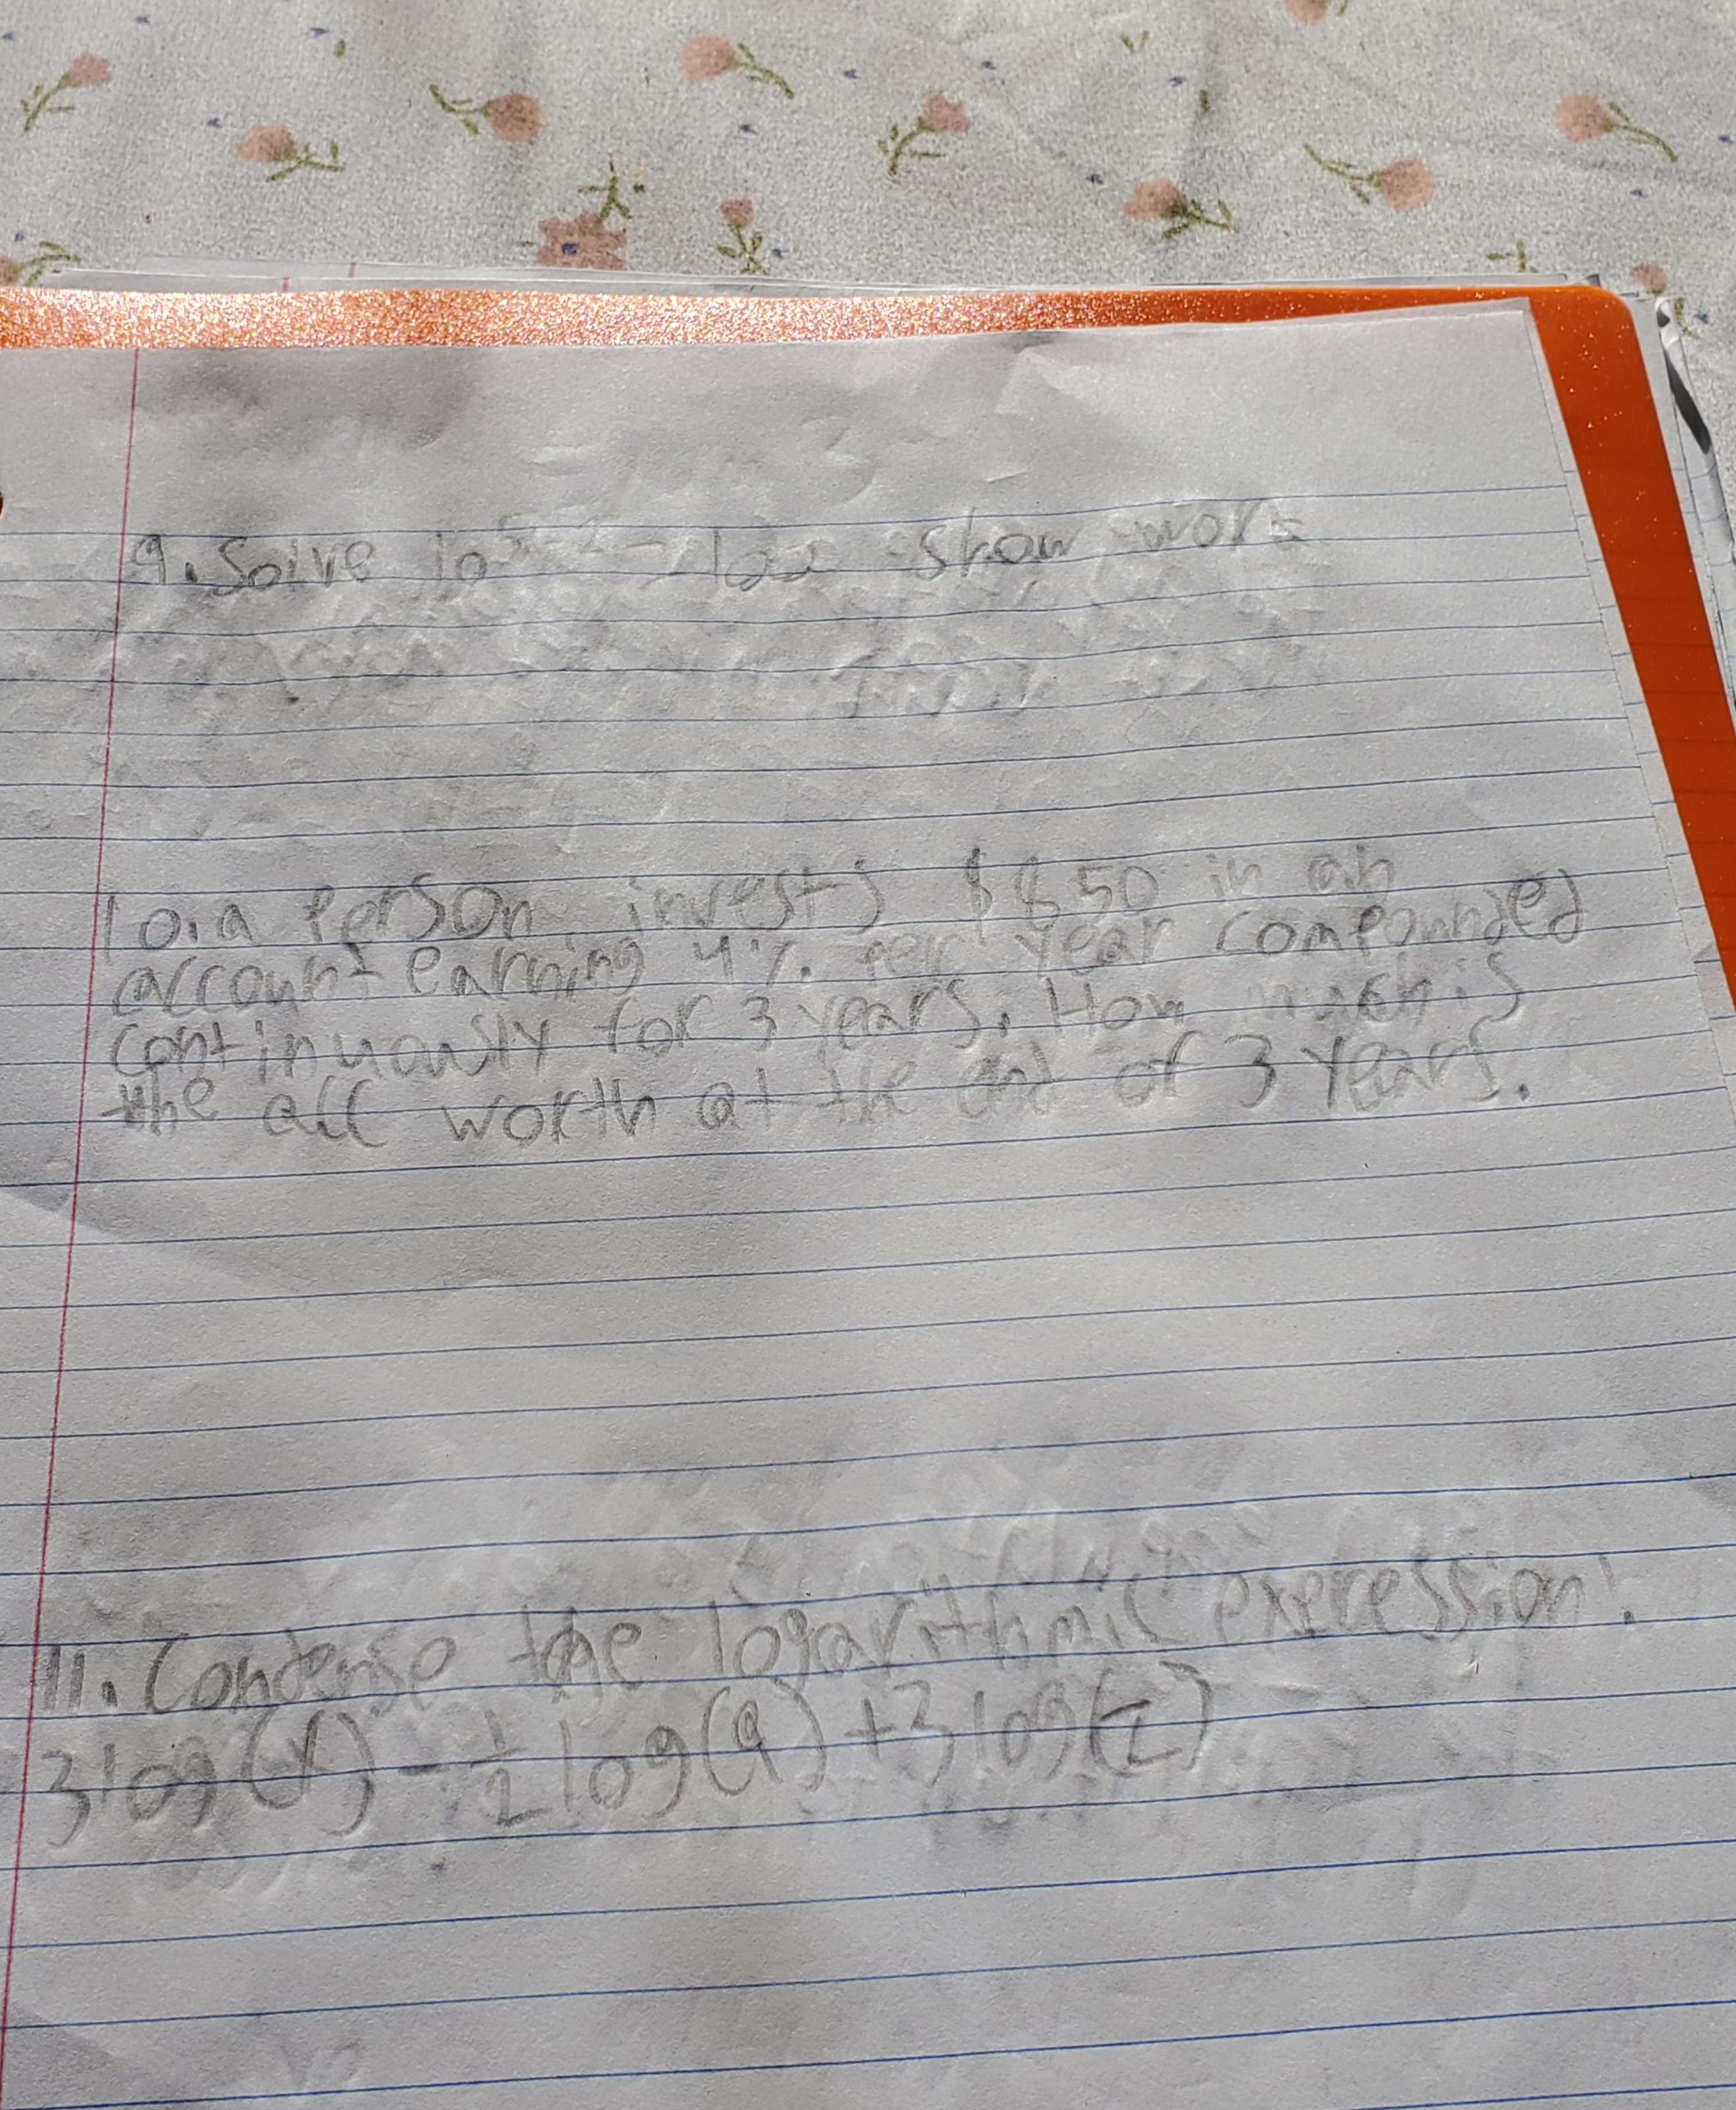 9. Solve show work
10. a person invests $850 in an
account earning 4% per year compounded
continuously for 3 years. How much is
the acc worth at the end of 3 years.
11. Condense the logarithmic experession!
3log(x) - 1/2 log(9) + 3log(z)